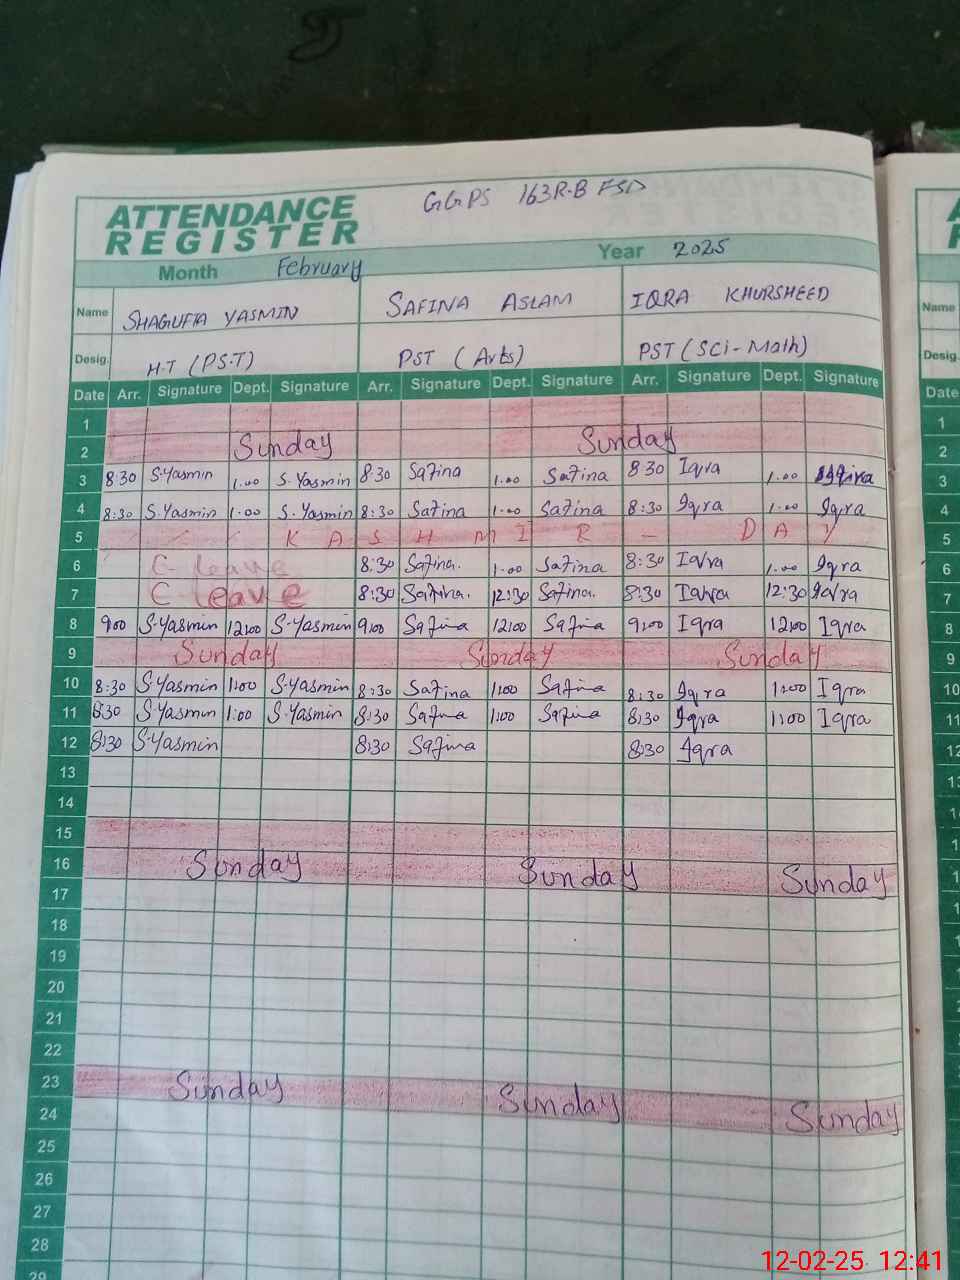 GGPS 163R-B FSD
ATTENDANCE
REGISTER
Month February Year 2025
Name SHAGUFTA YASMIN SAFINA ASLAM IQRA KHURSHEED Name
Desig. H.T (PS.T) PST (Arts) PST (Sci-Math) Desig.
Date Arr. Signature Dept. Signature Arr. Signature Dept. Signature Arr. Signature Dept. Signature Date
1 1
2 Sunday Sunday 2
3 8:30 S.Yasmin 1.00 S.Yasmin 8:30 Safina 1.00 Safina 8:30 Iqra 1.00 3
4 8:30 S.Yasmin 1.00 S.Yasmin 8:30 Safina 1.00 Safina 8:30 Iqra 1.00 Iqra 4
5 KASHMIR - DAY 5
6 C-leave 8:30 Safina. 1.00 Safina 8:30 Iqra 1.00 Iqra 6
7 C-leave 8:30 Safina. 12:30 Safina. 8:30 Iqra 12:30 Iqra 7
8 9:00 S.Yasmin 12:00 S.Yasmin 9:00 Safina 12:00 Safina 9:00 Iqra 12:00 Iqra 8
9 Sunday Sunday Sunday 9
10 8:30 S.Yasmin 1:00 S.Yasmin 8:30 Safina 1:00 Safina 8:30 Iqra 1:00 Iqra 10
11 8:30 S.Yasmin 1:00 S.Yasmin 8:30 Safina 1:00 Safina 8:30 Iqra 1:00 Iqra 11
12 8:30 S.Yasmin 8:30 Safina 8:30 Iqra 12
13
14
15
16 Sunday Sunday Sunday
17
18
19
20
21
22
23 Sunday Sunday Sunday
24
25
26
27
28
29
12-02-25 12:41